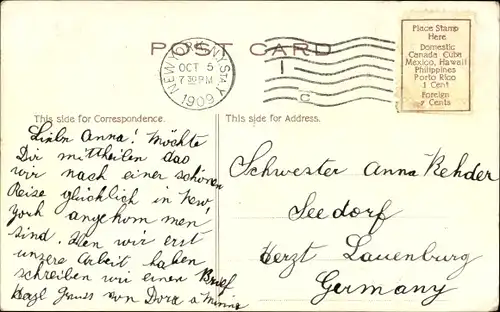 POST CARD
NEW YORK, N.Y. STA. Y
OCT 5
7 30 PM
1909
C
Place Stamp
Here
Domestic
Canada Cuba
Mexico, Hawaii
Philippines
Porto Rico
1 Cent
Foreign
2 Cents
This side for Correspondence.
Liebe Anna! Möchte
Dir mittheilen das
wir nach einer schönen
Reise glücklich in New
York angekommen
sind. Wen wir erst
unsere Arbeit haben
schreiben wir einen Brief
Herzl Gruss von Dora u Minna
This side for Address.
Schwester Anna Rehder
Seedorf
Herzt Lauenburg
Germany